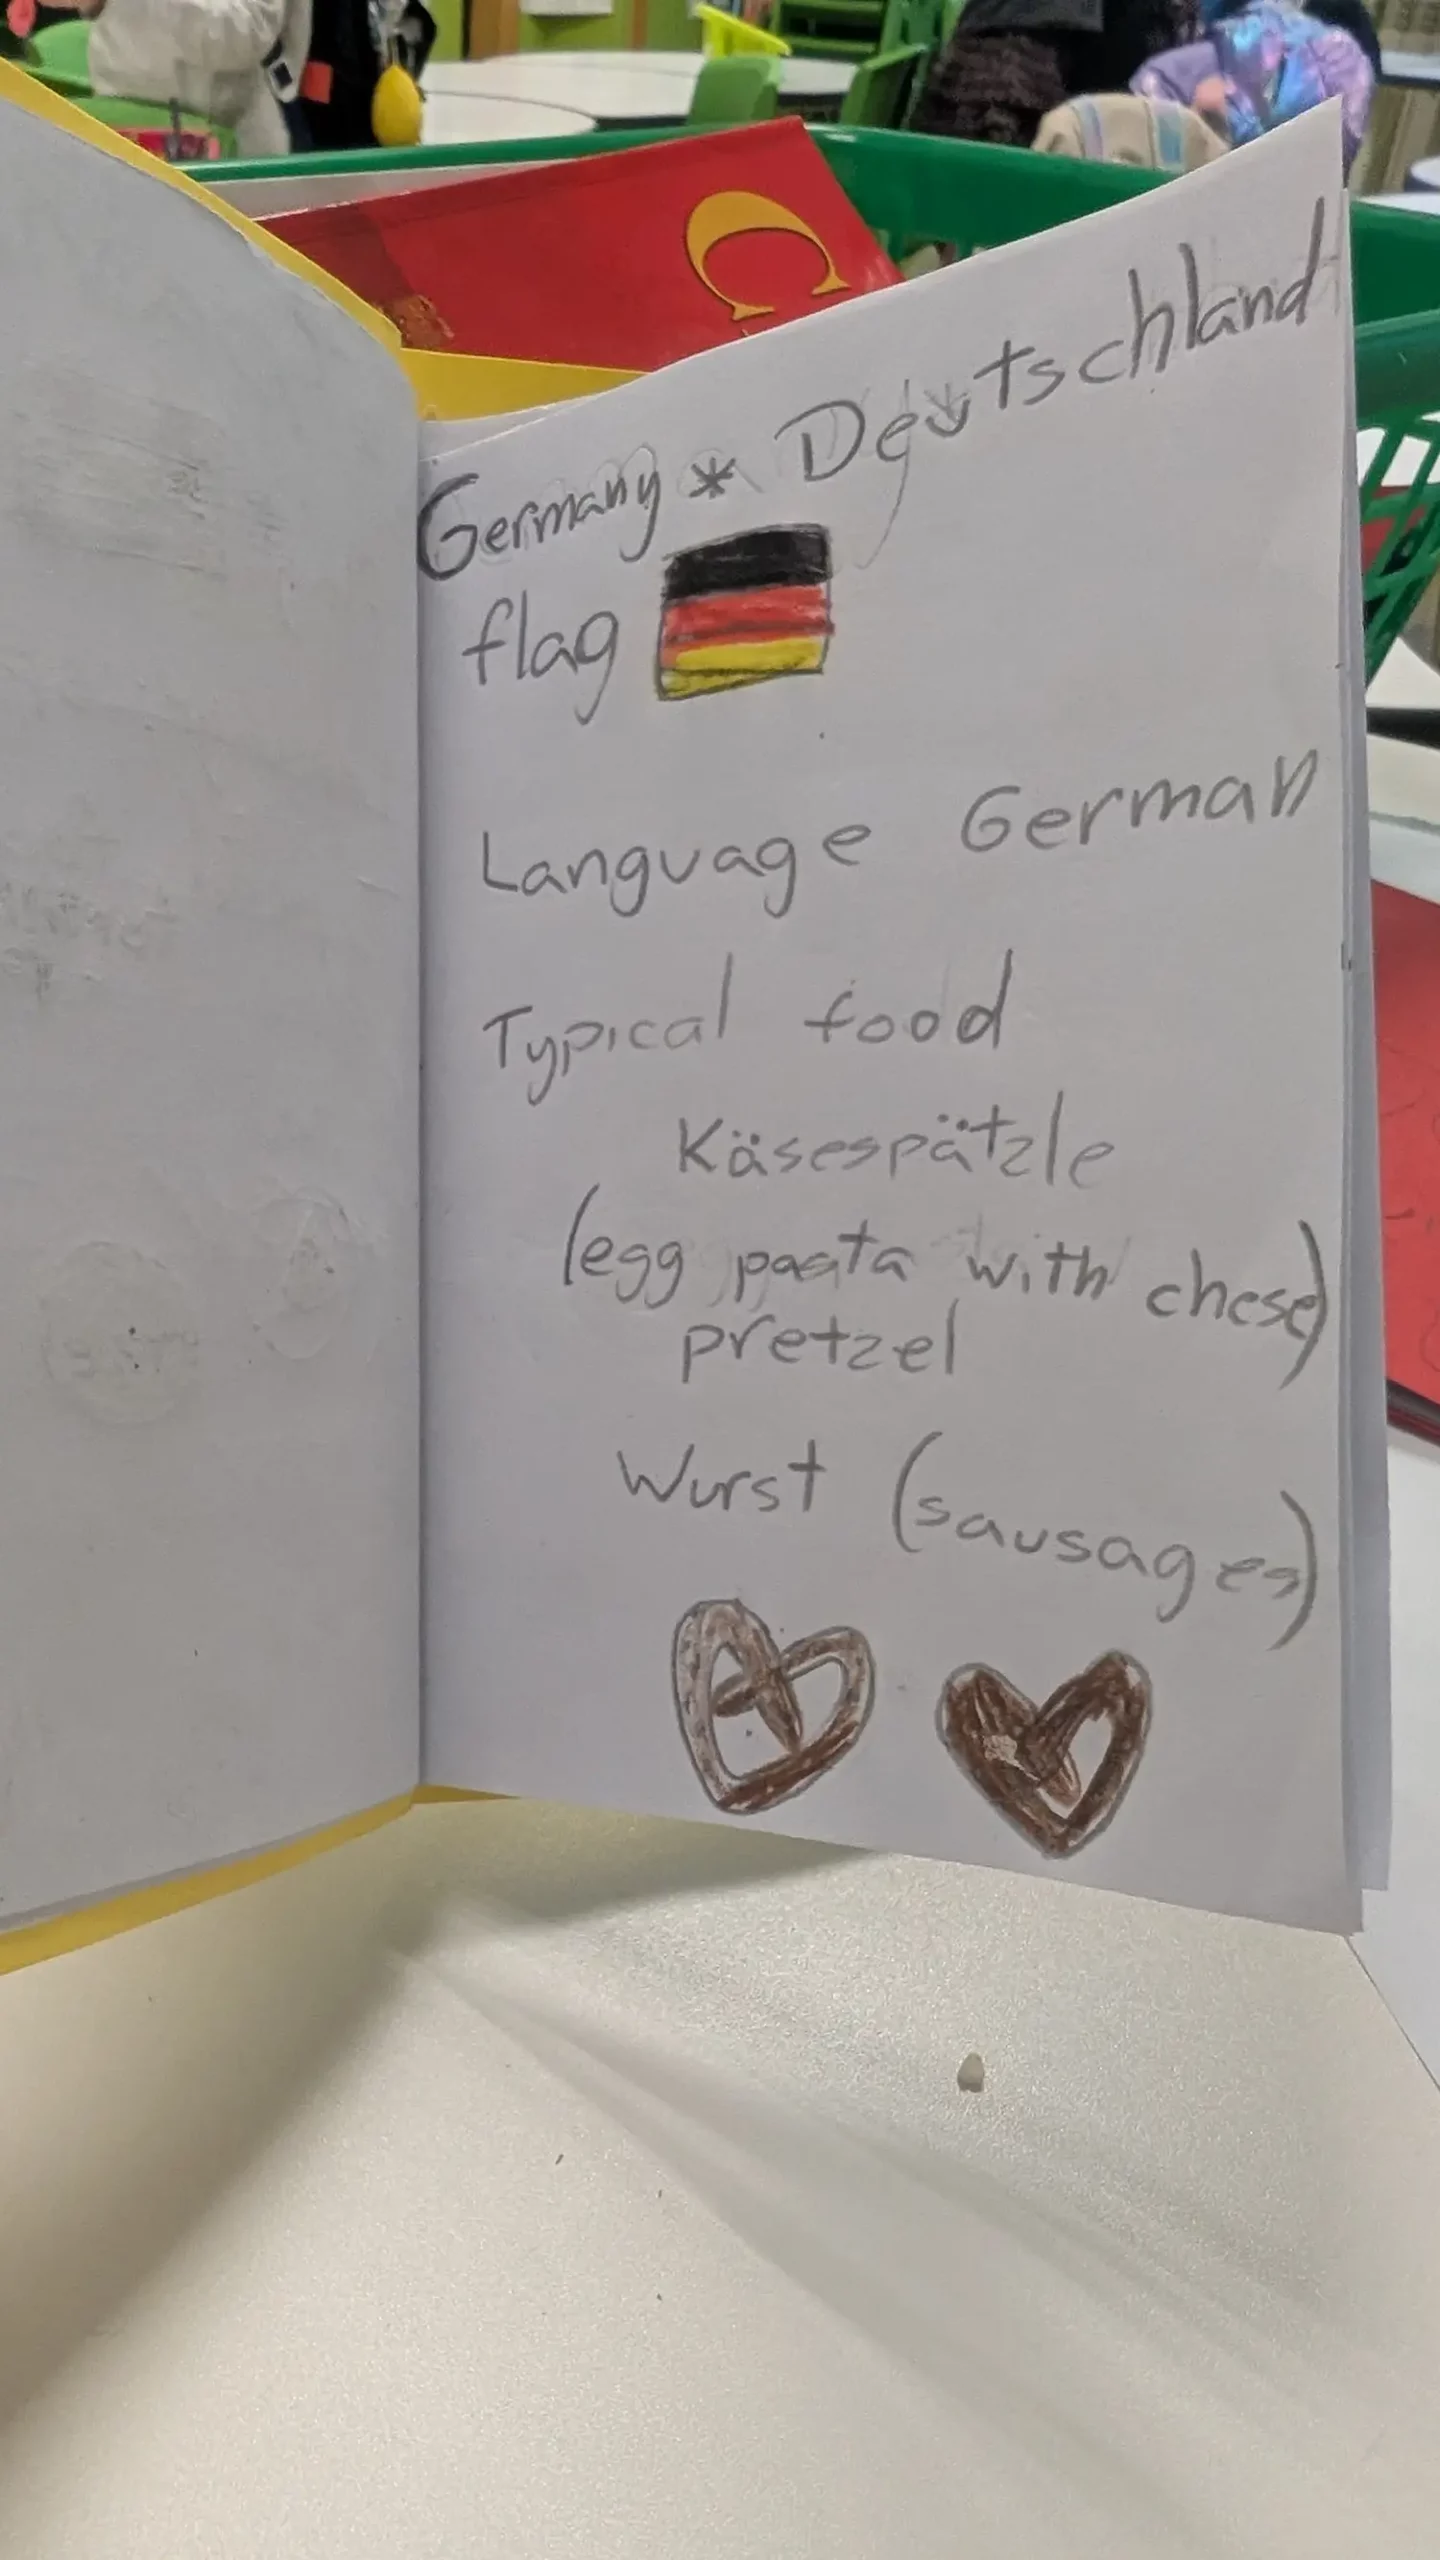 Germany * Deutschland
flag
Language German
Typical food
Käsespätzle
(egg pasta with chese)
pretzel
Wurst (sausages)